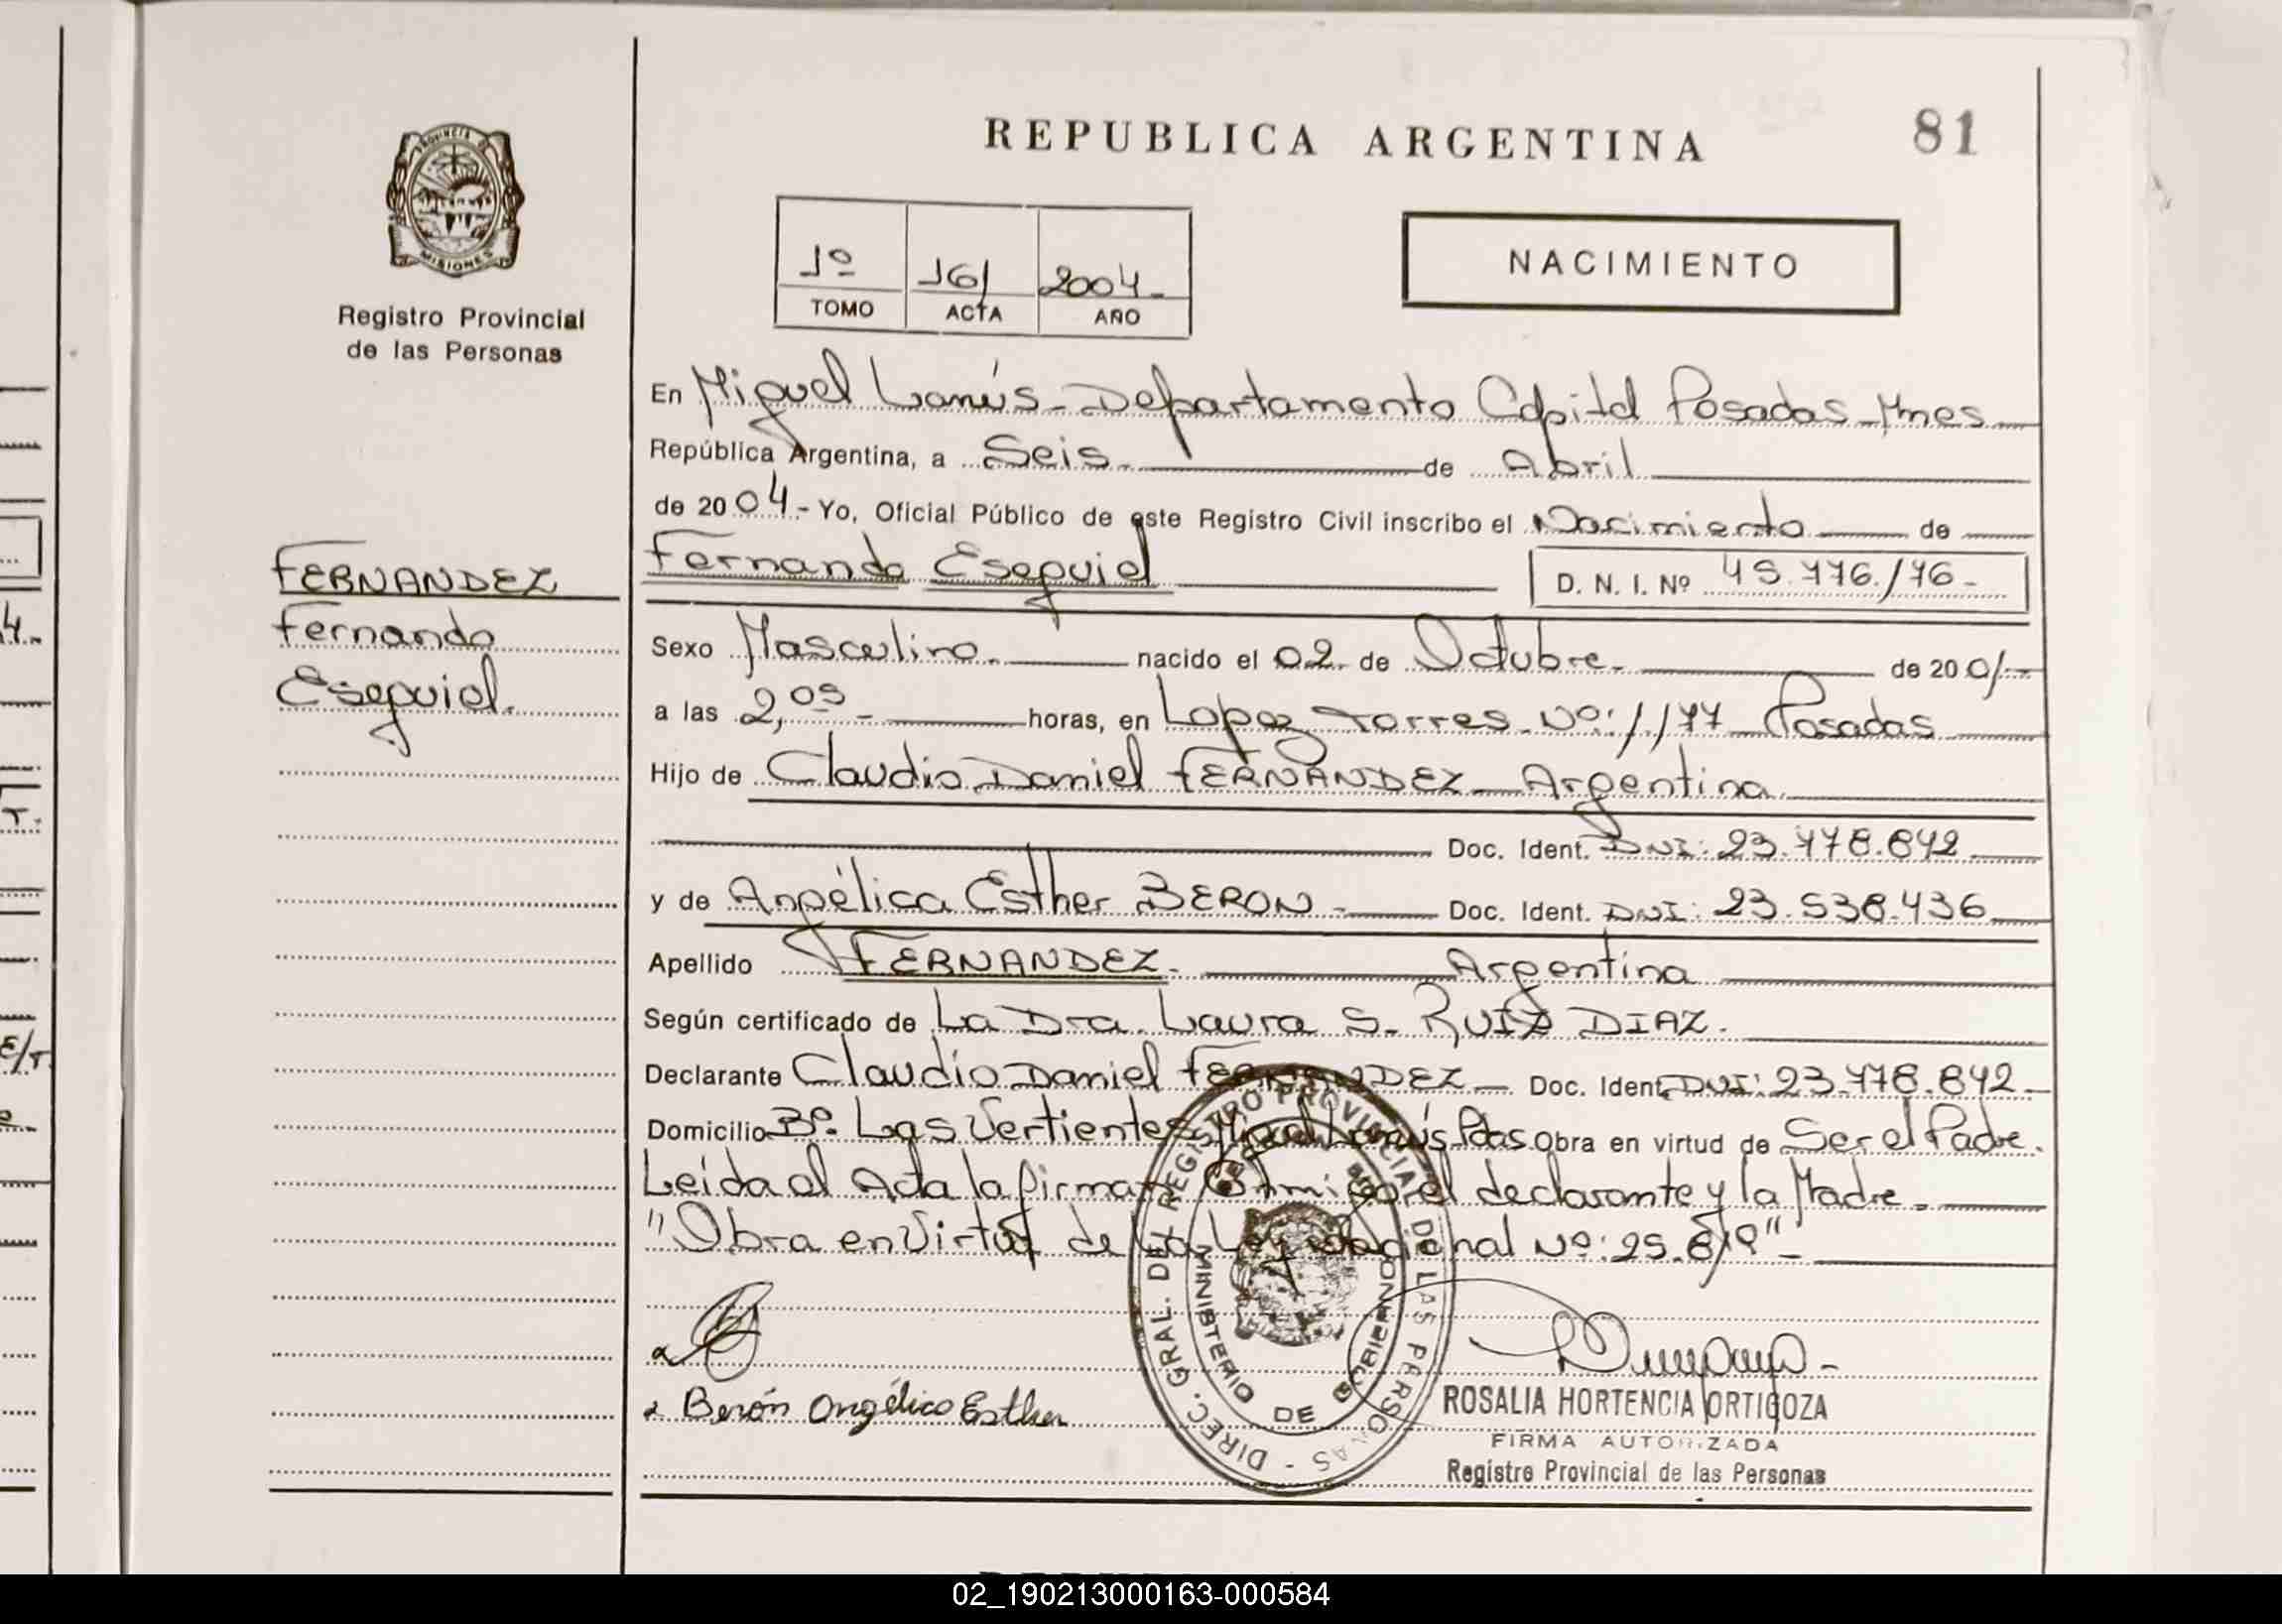 REPUBLICA ARGENTINA
81
PROVINCIA DE
MISIONES
Registro Provincial
de las Personas
1º 161 2004-
TOMO ACTA AÑO
NACIMIENTO
En Miguel Lanús - Departamento Capital Posadas - Mnes
República Argentina, a Seis de Abril
de 2004.- Yo, Oficial Público de este Registro Civil inscribo el Nacimiento de
Fernando Esequiel
D. N. I. Nº 45.776.176-
FERNANDEZ
Fernando
Esequiel.
Sexo Masculino. nacido el 02 de Octubre. de 2001.-
a las 2,05- horas, en Lopez Torres Nº: 1177 Posadas
Hijo de Claudio Daniel FERNANDEZ Argentina
Doc. Ident. DNI: 23.778.842
y de Angélica Esther BERON - Doc. Ident. DNI: 23.538.436
Apellido FERNANDEZ. Argentina
Según certificado de La Dra. Laura S. RUIZ DIAZ.
Declarante Claudio Daniel FERNANDEZ Doc. Ident. DNI: 23.778.842
Domicilio Bº. Las Vertientes Miguel Lanús Pdas Obra en virtud de Ser el Padre.
Leída el Acta la firman Conmigo el declarante y la Madre -
"Obra en Virtud de la Ley Nacional Nº: 25.819"-
Berón Angélica Esther
DIREC. GRAL. DEL REGISTRO PROVINCIAL DE LAS PERSONAS -
MINISTERIO DE GOBIERNO
ROSALIA HORTENCIA ORTIGOZA
FIRMA AUTORIZADA
Registro Provincial de las Personas
02_190213000163-000584